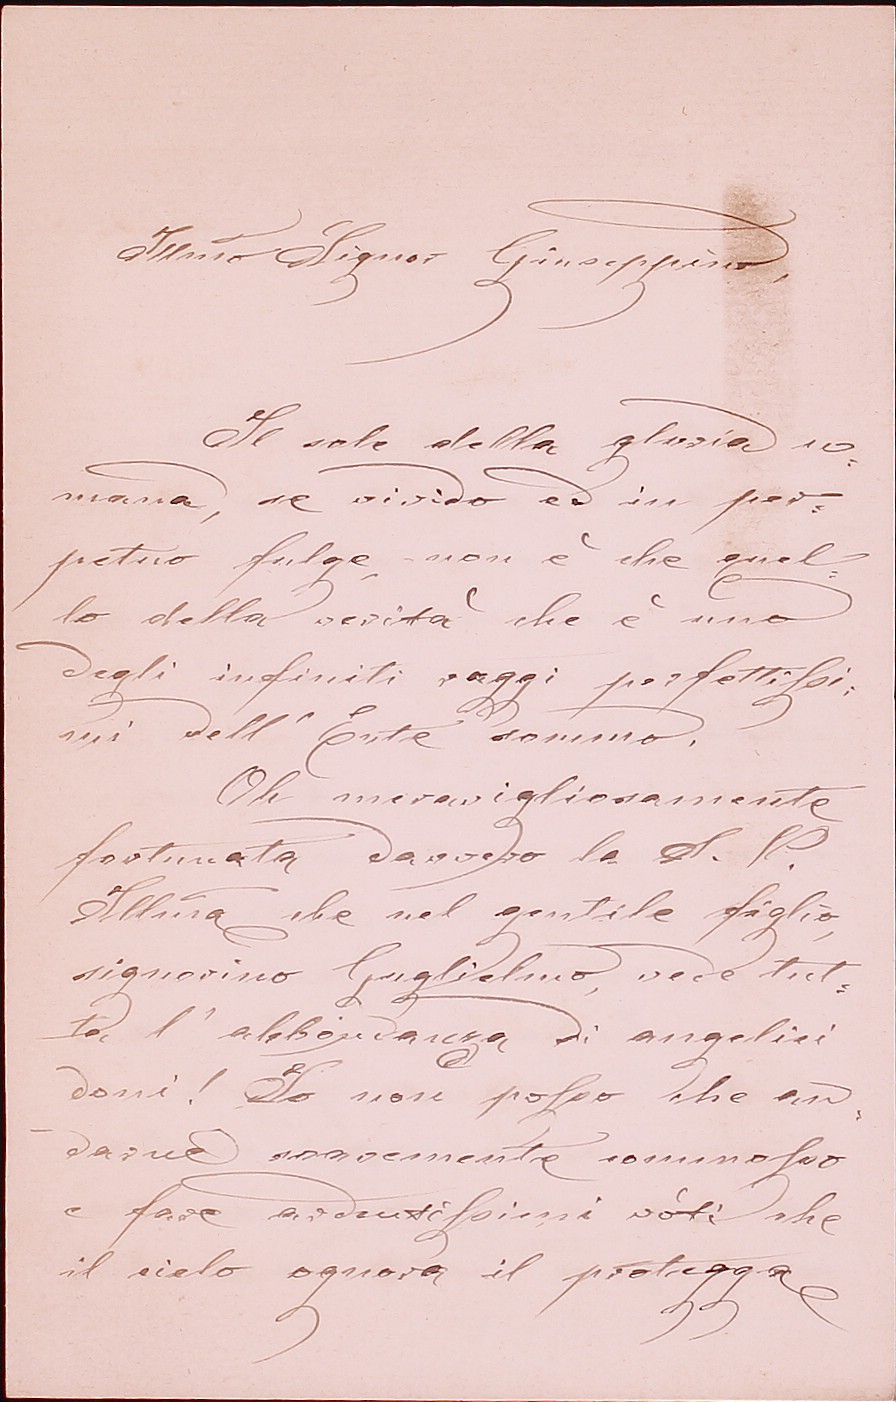 Illmo Signor Giuseppino,
Il sole della gloria u=
mana, se vivido ed in per=
petuo fulge, non è che quel=
lo della verità che è uno
degli infiniti raggi perfettissi=
mi dell'Ente sommo.
Oh meravigliosamente
fortunata davvero la S. V.
Illma che nel gentile figlio,
signorino Guglielmo, vede tut=
ta l'abbondanza di angelici
doni! Io non posso che an=
darne soavemente commosso
e fare ardentissimi vóti che
il cielo ognora il protegga